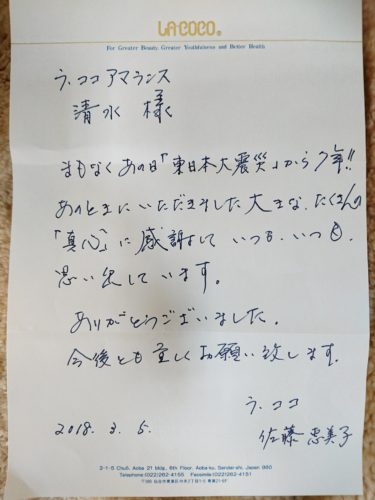 LACOCO®
For Greater Beauty, Greater Youthfulness and Better Health
ラ・ココアマランス
清水 様
まもなくあの日「東日本大震災」から7年!!
あのときにいただきました大きな、たくさんの
「真心」に感謝して いつも、いつも、
思い出しています。
ありがとうございました。
今後とも宜しくお願い致します。
ラ・ココ
2018. 3. 5. 佐藤 恵美子
2-1-5 Chuo, Aoba 21 Bldg., 6th Floor, Aoba-ku, Sendai-shi, Japan 980
Telephone:(022)262-4155 Facsimile:(022)262-4151